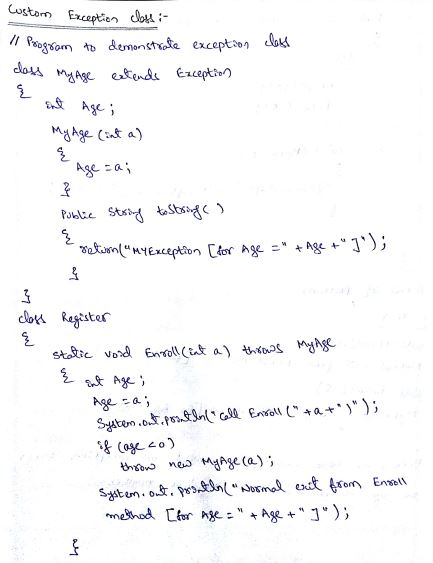 Custom Exception class:-
// Program to demonstrate exception class
class MyAge extends Exception
{
int Age;
MyAge (int a)
{
Age = a;
}
Public String toString( )
{
return("MYException [for Age =" + Age + " ]");
}
}
class Register
{
static void Enroll(int a) throws MyAge
{ int Age;
Age = a;
System.out.println("call Enroll (" + a + ")");
if (age < 0)
throw new MyAge(a);
System.out.println("Normal exit from Enroll
method [for Age = " + Age + " ]");
}